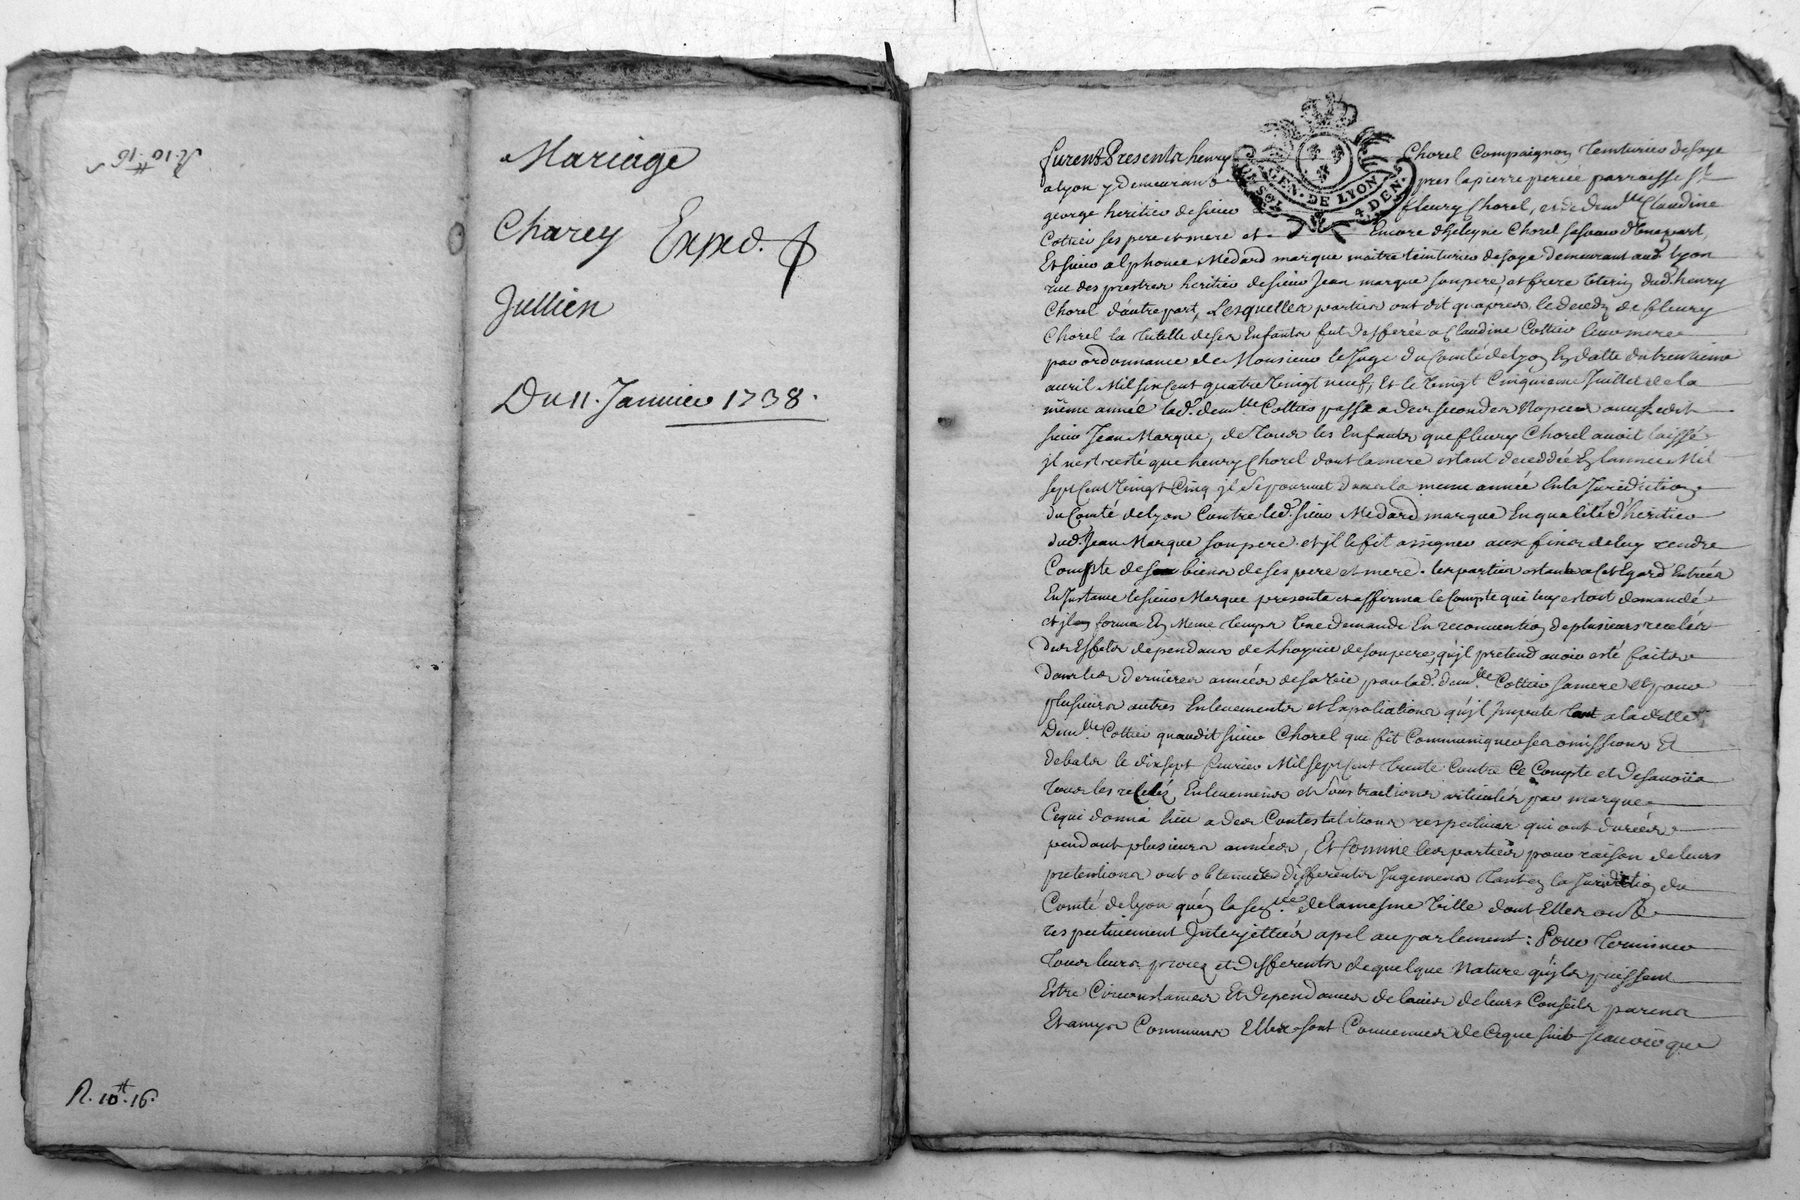 R. 10tt. 16s
Mariage
Charey Exped.
Jullien
Du 11. Janvier 1738.
R. 10tt. 16.
GEN. DE LYON
DEUX SOLS 4. DEN.
furent Presents henry Chorel Compaignon teinturier de soye
a lyon y demeurant pres la pierre percée parroisse St
george heritier de sieur fleury Chorel, et de demlle Claudine
Cottier ses pere et mere et Encore d'heleyne Chorel sa soeur d'Une part,
Et sieur alphonce Medard marque maitre teinturier de soye demeurant aud. lyon
rue des prestres heritier de sieur Jean marque son pere, et frere Uterin dud. henry
Chorel d'autre part, Lesquelles parties ont dit qu'apres le deceds de fleury
Chorel la tutelle de ses Enfants fut defferée a Claudine Cottier leur mere
par ordonnance de Monsieur le Juge du Comté de lyon En datte du trentieme
avril Mil six Cent quatre Vingt neuf, Et le Vingt Cinquieme Juillet de la
même année lad. demlle Cottier passa a des secondes Nopces avec ledit
sieur Jean Marque, de tous les Enfants que fleury Chorel avoit laissé
il n'est resté que henry Chorel dont la mere estant deceddée En l'année Mil
sept Cent Vingt Cinq il se pourvut dans la meme année En la Jurisdiction
du Comté de lyon Contre led. sieur Medard marque En qualité d'heritier
dud. Jean Marque son pere et il le fit assigner aux fins de luy rendre
Compte des biens de ses pere et mere. les parties estant a cet Egard Entrées
En Instance le sieur Marque presenta et affirma le Compte qui luy estoit demandé
et il en forma En Meme temps Une demande En reconvention de plusieurs recelés
des Effets dependans de l'hoyrie de son pere, qu'il pretend avoir esté faits
dans les dernieres années de sa Vie par lad. demlle Cottier sa mere Et pour
plusieurs autres Enlevements et spoliations qu'il Impute tant a la ditte
Demlle Cottier qu'audit sieur Chorel qui fit Communiquer ses omissions Et
debats le dix sept fevrier Mil sept Cent trente Contre Ce Compte et desavoüa
tous les recelés Enlevemens et soustractions articulés par marque
Ce qui donna lieu a des Contestations respectives qui ont durées
pendant plusieurs années, Et Comme les parties pour raison de leurs
pretentions ont obtenus differents Jugemens tant En la Jurisdiction du
Comté de lyon qu'En la senée. de la mesme Ville dont Elles ont
respectivement Interjettées apel au parlement: Pour terminer
tous leurs procez et differents de quelque Nature qu'ils puissent
Estre Circonstances Et dependances de l'avis de leurs Conseils parens
Et amys Communs Elles sont Convenues de Ce que suit sçavoir que